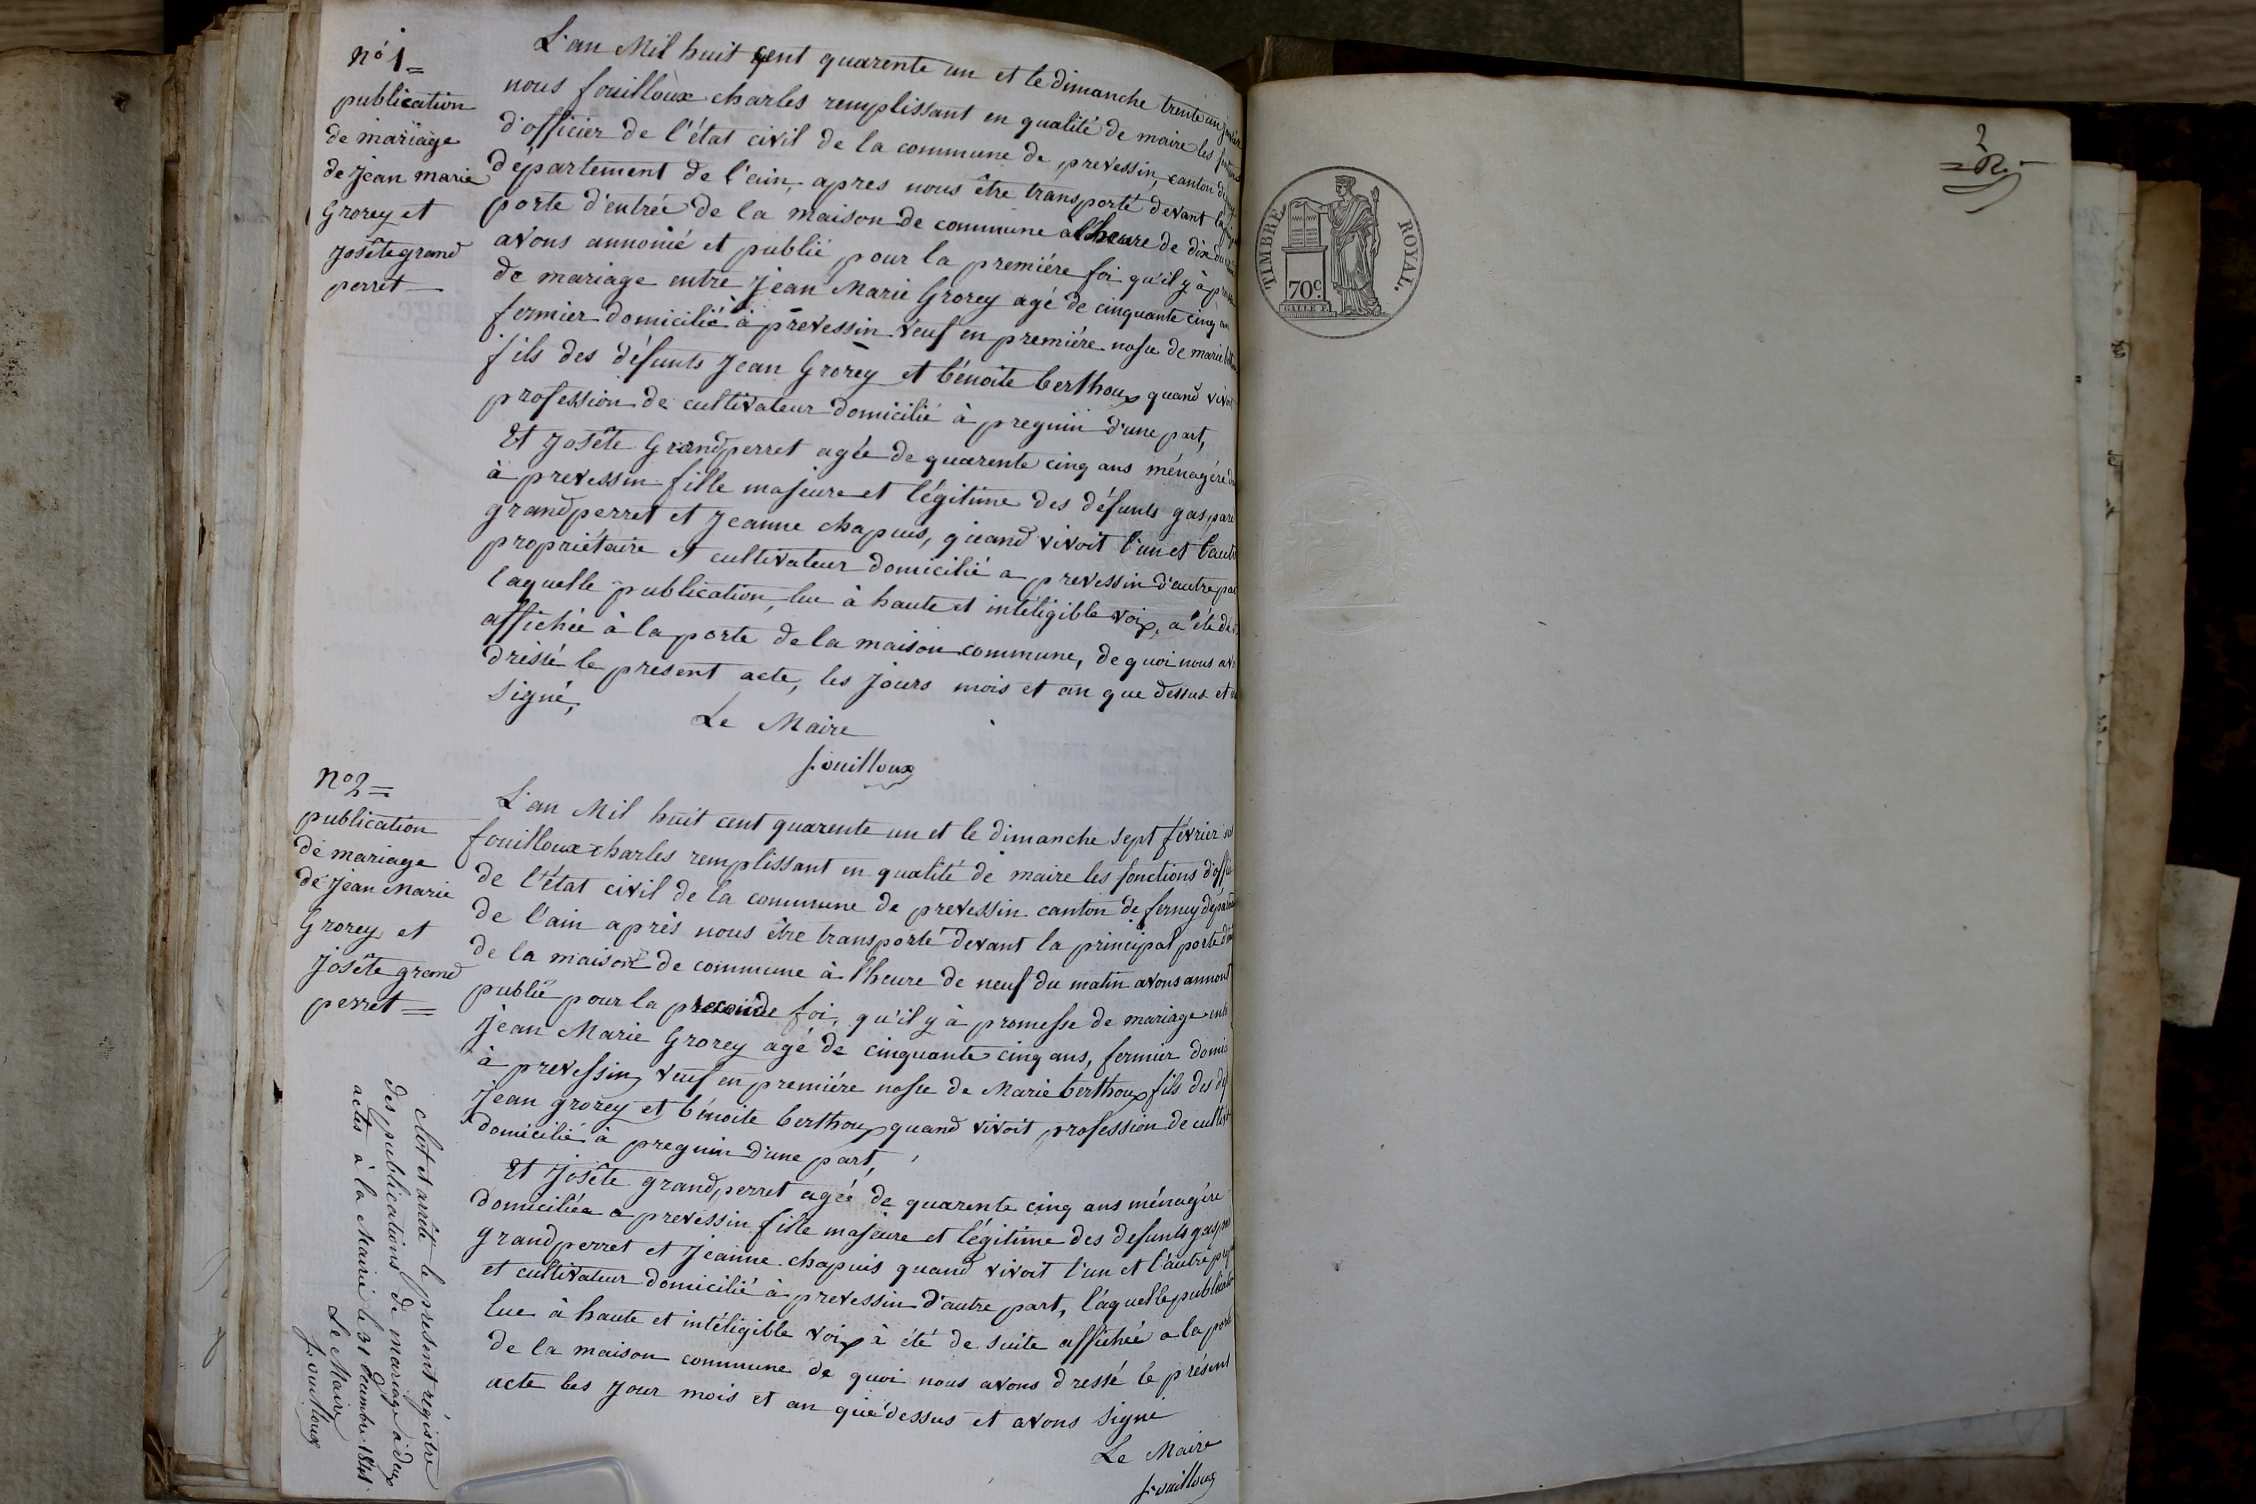 nº 1 =
publication
de mariage
de Jean marie
Grorey et
Joséte grand
perret
L'an Mil huit cent quarente un et le dimanche trente un
nous fouilloux charles remplissant en qualité de maire les
d'officier de l'état civil de la commune de prevessin, canton de
département de l'ain, apres nous être transporté devant la
porte d'entrée de la maison de commune a l'heure de dix du
avons annoncé et publié pour la premiére foi qu'il y à
de mariage entre Jean Marie Grorey agé de cinquante cinq
fermier domicilié à prevessin veuf en premiére nosse de marie
fils des défunts Jean Grorey et bénoite berthoux quand vivoit
profession de cultivateur domicilié à pregnin d'une part,
Et Joséte Grandperret agée de quarente cinq ans ménagére
à prevessin fille majeure et légitime des défunts gaspard
grandperret et Jeanne chapuis, quand vivoit l'un et l'autre
propriétaire et cultivateur domicilié a prevessin d'autre
laquelle publication, lue à haute et intéligible voix, a été de
affichée à la porte de la maison commune, de quoi nous
dressé le present acte, les jours mois et an que dessus et
signé,
Le Maire
fouilloux
nº 2 =
publication
de mariage
de Jean Marie
Grorey et
Joséte grand
perret =
L'an Mil huit cent quarente un et le dimanche sept février
fouilloux charles remplissant en qualité de maire les fonctions
de l'état civil de la commune de prevessin canton de ferney
de l'ain aprés nous être transporté devant la principal porte
de la maison de commune à l'heure de neuf du matin avons
publié pour la seconde foi, qu'il y à promesse de mariage
Jean Marie Grorey agé de cinquante cinq ans, fermier
à prevessin, veuf en premiére nosse de Marie berthoux fils des
Jean grorey et bénoite berthoux quand vivoit profession de
domicilié à pregnin d'une part,
Et Joséte grandperret agée de quarente cinq ans ménagére
domiciliée a prevessin fille majeure et légitime des defunts
grandperret et Jeanne chapuis quand vivoit l'un et l'autre
et cultivateur domicilié à prevessin d'autre part, laquelle
lue à haute et intéligible voix à été de suite affichée a la porte
de la maison commune de quoi nous avons dressé le présent
acte les jour mois et an que dessus et avons signé
Le Maire
fouilloux
clot et arrêté le present régistre
des publications de mariage à deux
actes à la Mairie le 31 décembre 1841.
Le Maire
fouilloux
2
TIMBRE ROYAL.
70c